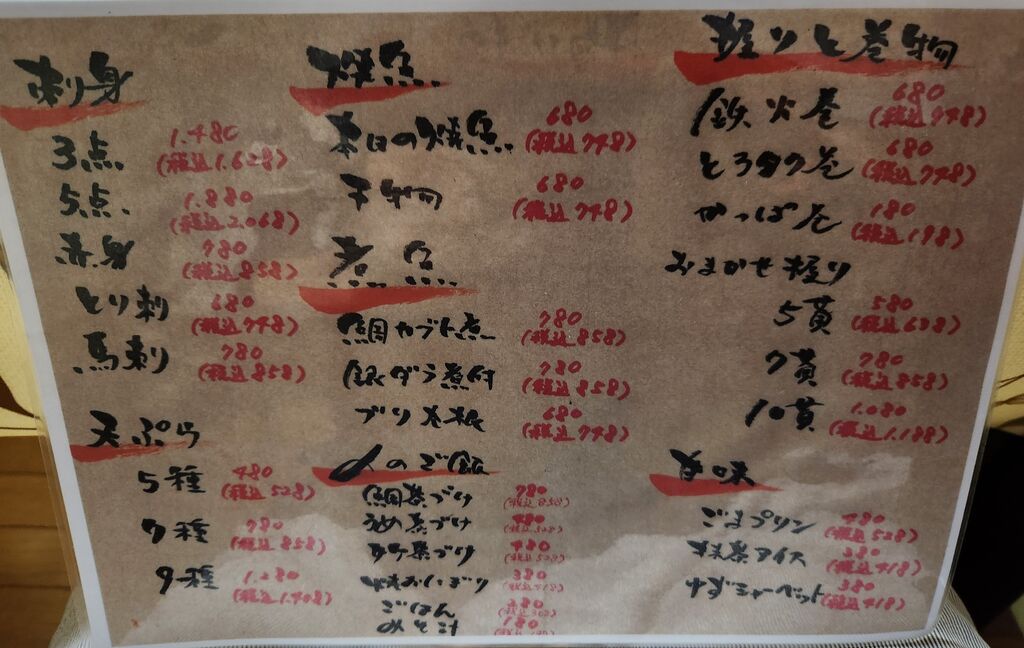 刺身
3点 1.480
(税込1.628)
5点 1.880
(税込2,068)
赤身 780
(税込858)
とり刺 680
(税込748)
馬刺 780
(税込858)
天ぷら
5種 480
(税込528)
7種 780
(税込858)
9種 1.280
(税込1.408)
焼魚
本日の焼魚 680
(税込748)
干物 680
(税込748)
煮魚
鯛カブト煮 780
(税込858)
銀ダラ煮付 780
(税込858)
ブリ大根 680
(税込748)
〆のご飯
鯛茶づけ 780
(税込858)
うめ茶づけ 480
(税込528)
サケ茶づけ 480
(税込528)
焼おにぎり 380
(税込418)
ごはん
みそ汁 180
握りと巻物
鉄火巻 680
(税込748)
とろタク巻 680
(税込748)
かっぱ巻 180
(税込198)
おまかせ握り
5貫 580
(税込638)
7貫 780
(税込858)
10貫 1.080
(税込1.188)
甘味
ごまプリン 480
(税込528)
抹茶アイス 380
(税込418)
ゆずシャーベット 380
(税込418)